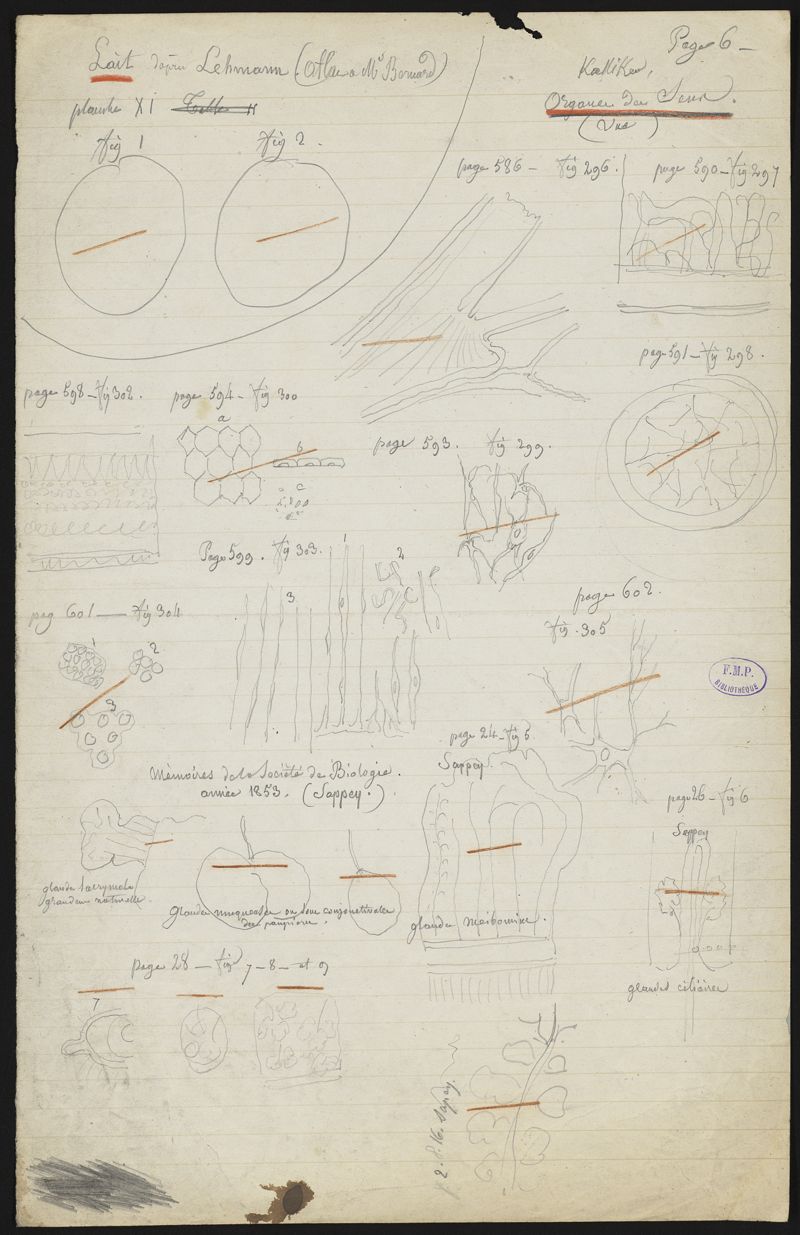 Page 6 —
Lait d'après Lehmann (Atlas Mr Bernard)
planche XI
Fig 1
Fig 2.
Kolliker,
Organes des Sens.
(Vue)
page 586 — Fig 296.
page 590 — Fig 297
page 591 — Fig 298.
page 598 — Fig 302.
page 594 — Fig 300
a
b
c
page 593. Fig 299.
Page 599. Fig 303.
1
2
3
pag 601 — Fig 304
1
2
3
page 602.
Fig. 305
F.M.P.
BIBLIOTHÈQUE
Mémoires de la Société de Biologie.
année 1853. (Sappey.)
page 24 — Fig 5
Sappey.
page 26 — Fig 6
Sappey
glande lacrymale
grandeur naturelle.
Glandes muqueuses ou sous conjonctivales
des paupières.
glande Meibomius.
glandes ciliaires
page 28 — Fig 7 — 8 — et 9
7
p. 2. f. 16. Sappey.